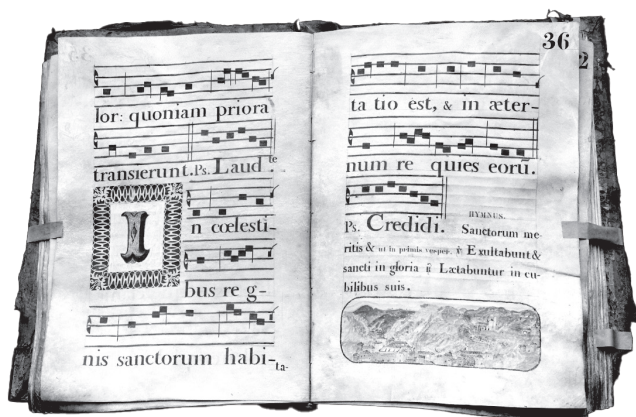 lor: quoniam priora
transierunt. Ps. Laud.te
I
n cœlesti-
bus re g-
nis sanctorum habi-
ta-
36
2
ta tio est, & in æter-
num re quies eorū.
HYMNUS.
Ps. Credidi. Sanctorum me
ritis & ut in primis vesper. ℣ Exultabunt &
sancti in gloria ℟ Lætabuntur in cu-
bilibus suis.